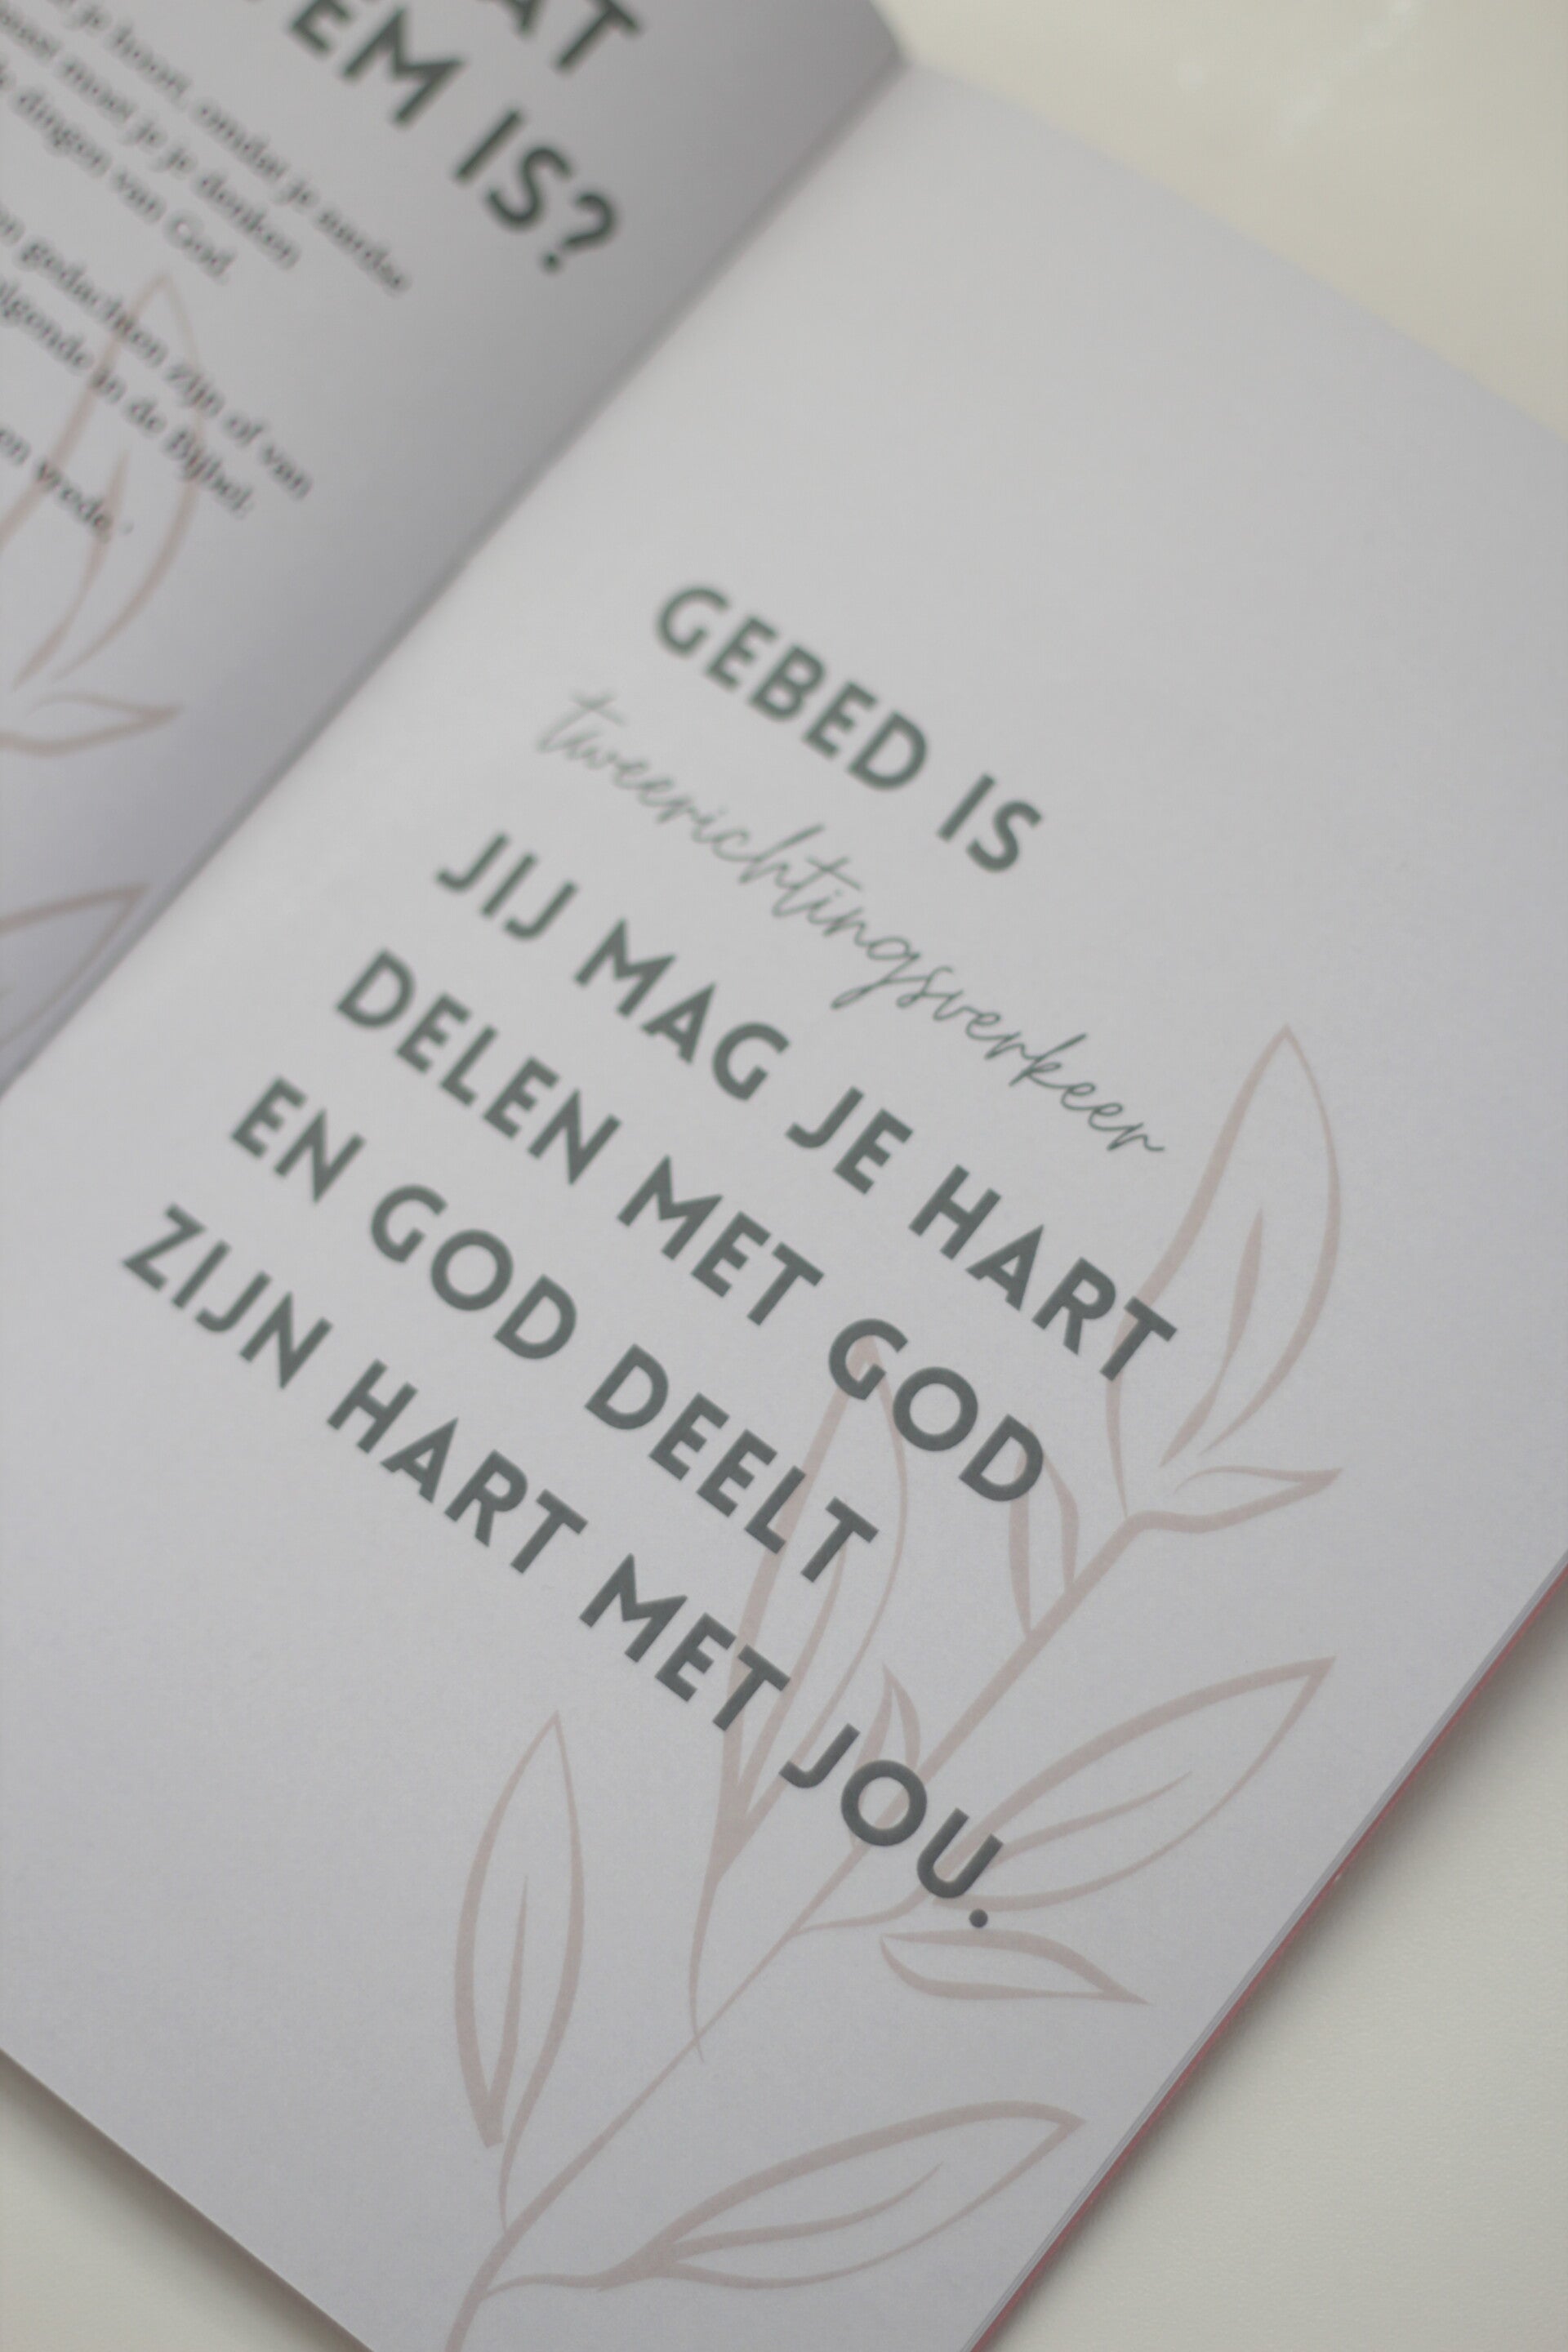 AT
EM IS?
je hoort, omdat je aardse
moet je je denken
dingen van God.
gedachten zijn of van
in de Bijbel.
vrede.'
GEBED IS
tweerichtingsverkeer
JIJ MAG JE HART
DELEN MET GOD
EN GOD DEELT
ZIJN HART MET JOU.